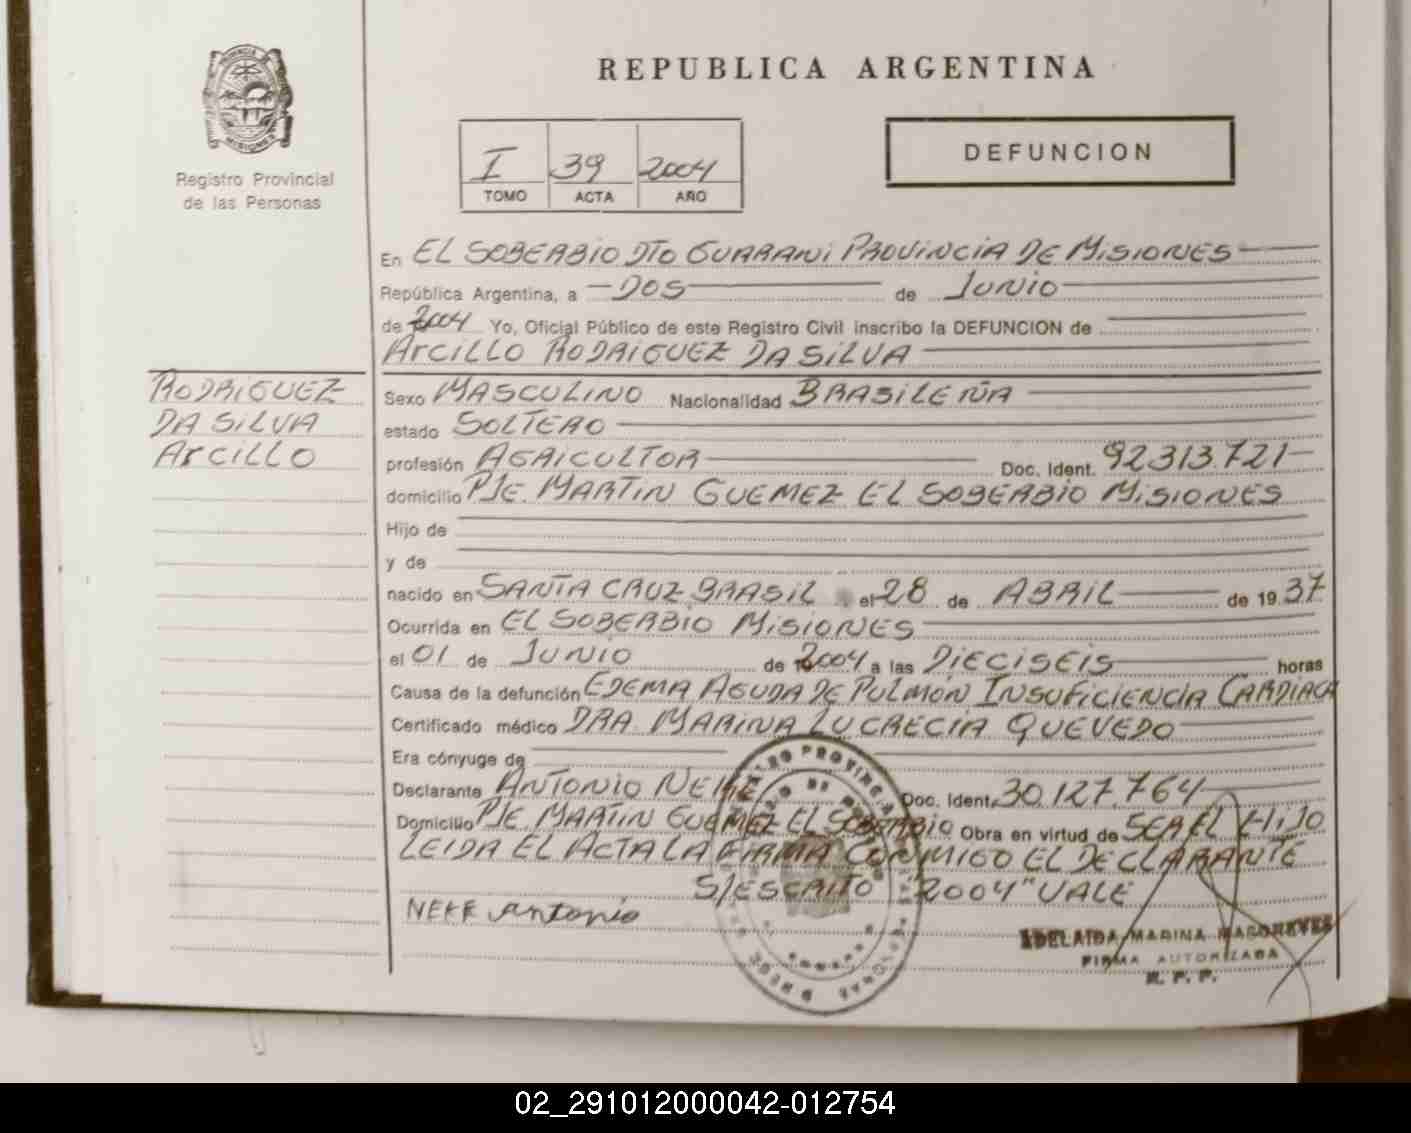 REPUBLICA ARGENTINA
PROVINCIA DE
MISIONES
Registro Provincial
de las Personas
I 39 2004
TOMO ACTA AÑO
DEFUNCION
En EL SOBERBIO DTO GUARANI PROVINCIA DE MISIONES
República Argentina, a DOS de JUNIO
de 2004 Yo, Oficial Público de este Registro Civil inscribo la DEFUNCION de
ArCILLO RODRIGUEZ DA SILVA
RODRIGUEZ
DA SILVA
ArCILLO
Sexo MASCULINO Nacionalidad BRASILEÑA
estado SOLTERO
profesión AGRICULTOR Doc. Ident. 92313.721
domicilio PJE. MARTIN GUEMEZ EL SOBERBIO MISIONES
Hijo de
y de
nacido en SANTA CRUZ BRASIL el 28 de ABRIL de 19 37
Ocurrida en EL SOBERBIO MISIONES
el 01 de JUNIO de 2004 a las DIECISEIS horas
Causa de la defunción EDEMA AGUDA DE PULMON INSUFICIENCIA CARDIACA
Certificado médico DRA. MARINA LUCRECIA QUEVEDO
Era cónyuge de
Declarante ANTONIO Doc. Ident. 30.127.764
Domicilio PJE. MARTIN GUEMEZ EL SOBERBIO Obra en virtud de SER EL HIJO
LEIDA EL ACTA LA FIRMA CONMIGO EL DECLARANTE
S/ESCRITO "2004" VALE
Antonio
ADELAIDA MARINA
FIRMA AUTORIZADA
R. P. P.
02_291012000042-012754